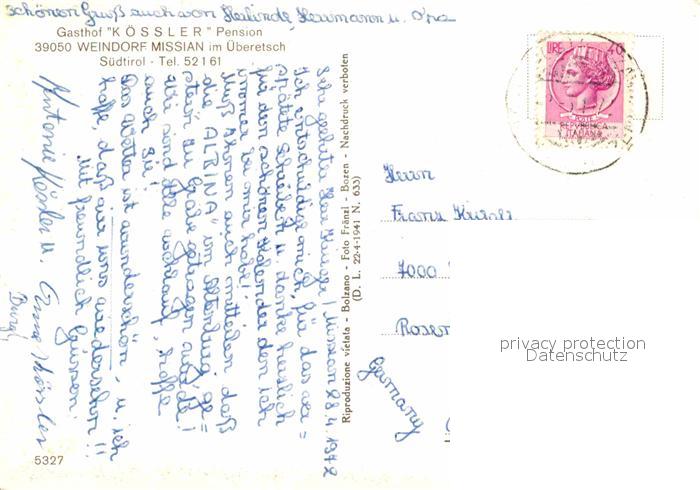 schönen Gruß auch von Herlinde, Hermann u. Opa
Gasthof "KÖSSLER" Pension
39050 WEINDORF MISSIAN im Überetsch
Südtirol - Tel. 52161
Missian 28.4.1972
Sehr geehrter Herr Krüger!
Ich entschuldige mich, für das ver=
spätete Schreiben u. danke herzlich
für den schönen Kalender den ich
immer bei mir habe!
Muß Ihnen auch mitteilen daß
die "ALBINA" im Altenburg, ge=
storben zu Grabe getragen wurde!
Wir sind alle wohlauf, hoffe
auch Sie!
Das Wetter ist wunderschön, u. ich
hoffe, daß wir uns wiedersehn!!
Mit freundlich Grüssen
Antonie Kössler u. Anna Kössler
Burgl
Riproduzione vietata - Bolzano - Foto Fränzl - Bozen - Nachdruck verboten
(D. L. 22-4-1941 N. 633)
LIRE 40
POSTE
REPUBBLICA
ITALIANA
Herrn
Franz
7000
Rosen
Germany
privacy protection
Datenschutz
5327